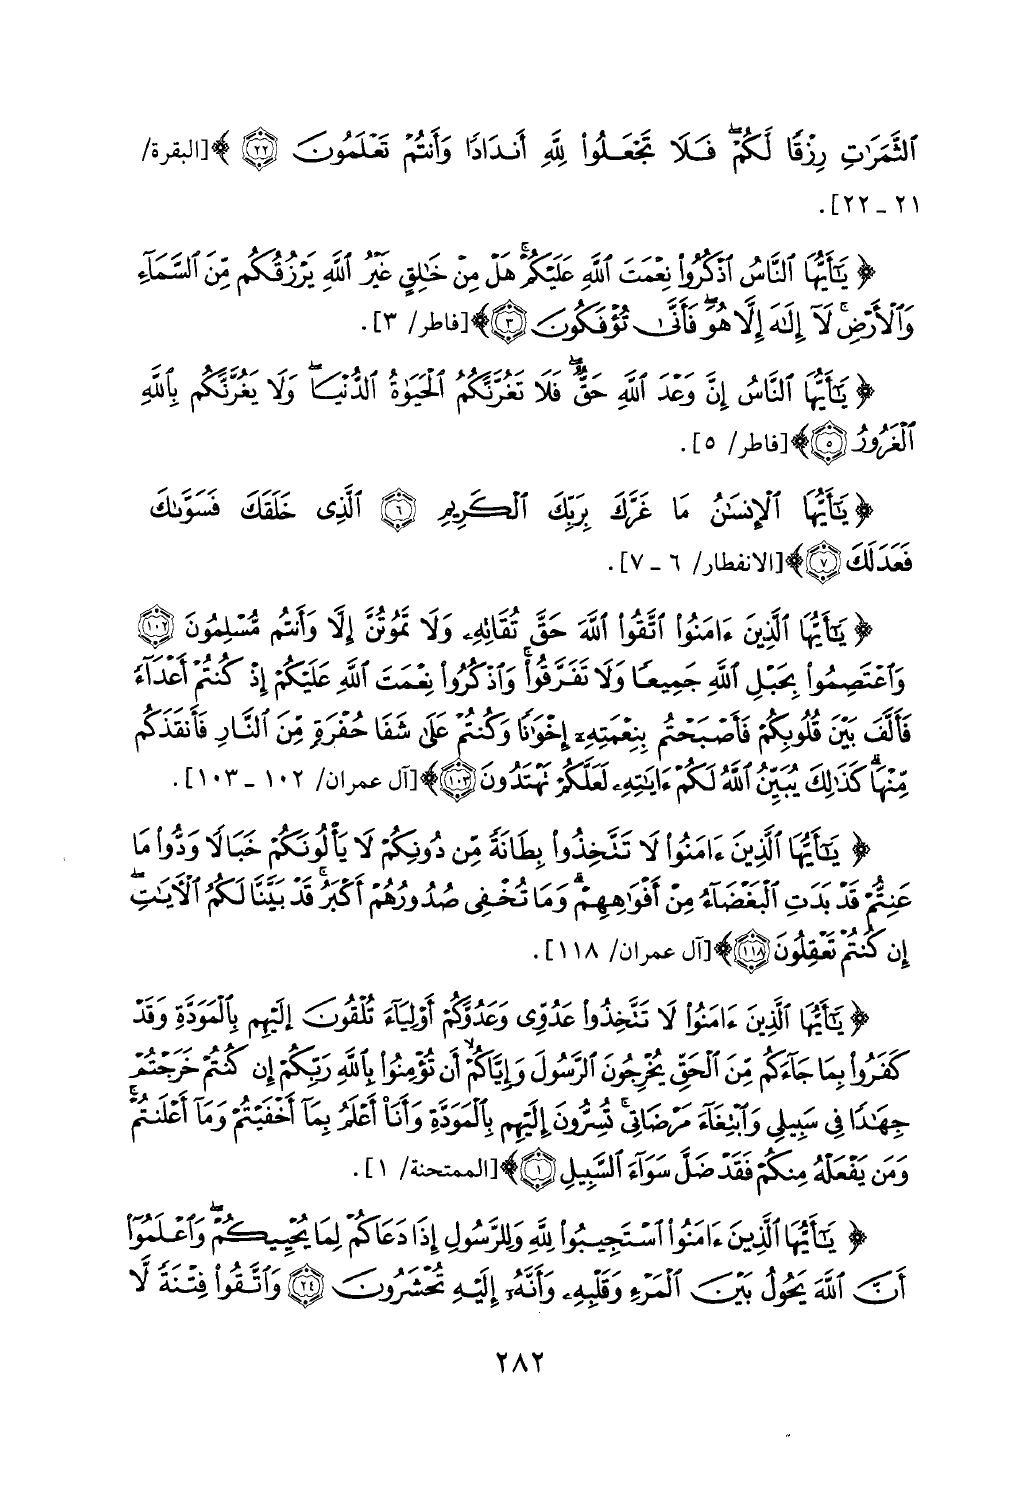 ٱلثَّمَرَٰتِ رِزْقًا لَّكُمْ ۖ فَلَا تَجْعَلُوا۟ لِلَّهِ أَندَادًا وَأَنتُمْ تَعْلَمُونَ ٢٢ ﴾[البقرة/
٢١ ـ ٢٢].
﴿ يَٰٓأَيُّهَا ٱلنَّاسُ ٱذْكُرُوا۟ نِعْمَتَ ٱللَّهِ عَلَيْكُمْ ۚ هَلْ مِنْ خَٰلِقٍ غَيْرُ ٱللَّهِ يَرْزُقُكُم مِّنَ ٱلسَّمَآءِ
وَٱلْأَرْضِ ۚ لَآ إِلَٰهَ إِلَّا هُوَ ۖ فَأَنَّىٰ تُؤْفَكُونَ ٣ ﴾[فاطر/ ٣].
﴿ يَٰٓأَيُّهَا ٱلنَّاسُ إِنَّ وَعْدَ ٱللَّهِ حَقٌّ ۖ فَلَا تَغُرَّنَّكُمُ ٱلْحَيَوٰةُ ٱلدُّنْيَا ۖ وَلَا يَغُرَّنَّكُم بِٱللَّهِ
ٱلْغَرُورُ ٥ ﴾[فاطر/ ٥].
﴿ يَٰٓأَيُّهَا ٱلْإِنسَٰنُ مَا غَرَّكَ بِرَبِّكَ ٱلْكَرِيمِ ٦ ٱلَّذِى خَلَقَكَ فَسَوَّىٰكَ
فَعَدَلَكَ ٧ ﴾[الانفطار/ ٦ ـ ٧].
﴿ يَٰٓأَيُّهَا ٱلَّذِينَ ءَامَنُوا۟ ٱتَّقُوا۟ ٱللَّهَ حَقَّ تُقَاتِهِۦ وَلَا تَمُوتُنَّ إِلَّا وَأَنتُم مُّسْلِمُونَ ١٠٢
وَٱعْتَصِمُوا۟ بِحَبْلِ ٱللَّهِ جَمِيعًا وَلَا تَفَرَّقُوا۟ ۚ وَٱذْكُرُوا۟ نِعْمَتَ ٱللَّهِ عَلَيْكُمْ إِذْ كُنتُمْ أَعْدَآءً
فَأَلَّفَ بَيْنَ قُلُوبِكُمْ فَأَصْبَحْتُم بِنِعْمَتِهِۦٓ إِخْوَٰنًا وَكُنتُمْ عَلَىٰ شَفَا حُفْرَةٍ مِّنَ ٱلنَّارِ فَأَنقَذَكُم
مِّنْهَا ۗ كَذَٰلِكَ يُبَيِّنُ ٱللَّهُ لَكُمْ ءَايَٰتِهِۦ لَعَلَّكُمْ تَهْتَدُونَ ١٠٣ ﴾[آل عمران/ ١٠٢ ـ ١٠٣].
﴿ يَٰٓأَيُّهَا ٱلَّذِينَ ءَامَنُوا۟ لَا تَتَّخِذُوا۟ بِطَانَةً مِّن دُونِكُمْ لَا يَأْلُونَكُمْ خَبَالًا وَدُّوا۟ مَا
عَنِتُّمْ قَدْ بَدَتِ ٱلْبَغْضَآءُ مِنْ أَفْوَٰهِهِمْ ۗ وَمَا تُخْفِى صُدُورُهُمْ أَكْبَرُ ۚ قَدْ بَيَّنَّا لَكُمُ ٱلْءَايَٰتِ ۖ
إِن كُنتُمْ تَعْقِلُونَ ١١٨ ﴾[آل عمران/ ١١٨].
﴿ يَٰٓأَيُّهَا ٱلَّذِينَ ءَامَنُوا۟ لَا تَتَّخِذُوا۟ عَدُوِّى وَعَدُوَّكُمْ أَوْلِيَآءَ تُلْقُونَ إِلَيْهِم بِٱلْمَوَدَّةِ وَقَدْ
كَفَرُوا۟ بِمَا جَآءَكُم مِّنَ ٱلْحَقِّ يُخْرِجُونَ ٱلرَّسُولَ وَإِيَّاكُمْ ۙ أَن تُؤْمِنُوا۟ بِٱللَّهِ رَبِّكُمْ إِن كُنتُمْ خَرَجْتُمْ
جِهَٰدًا فِى سَبِيلِى وَٱبْتِغَآءَ مَرْضَاتِى ۚ تُسِرُّونَ إِلَيْهِم بِٱلْمَوَدَّةِ وَأَنَا۠ أَعْلَمُ بِمَآ أَخْفَيْتُمْ وَمَآ أَعْلَنتُمْ ۚ
وَمَن يَفْعَلْهُ مِنكُمْ فَقَدْ ضَلَّ سَوَآءَ ٱلسَّبِيلِ ١ ﴾[الممتحنة/ ١].
﴿ يَٰٓأَيُّهَا ٱلَّذِينَ ءَامَنُوا۟ ٱسْتَجِيبُوا۟ لِلَّهِ وَلِلرَّسُولِ إِذَا دَعَاكُمْ لِمَا يُحْيِيكُمْ ۖ وَٱعْلَمُوٓا۟
أَنَّ ٱللَّهَ يَحُولُ بَيْنَ ٱلْمَرْءِ وَقَلْبِهِۦ وَأَنَّهُۥٓ إِلَيْهِ تُحْشَرُونَ ٢٤ وَٱتَّقُوا۟ فِتْنَةً لَّا
٢٨٢